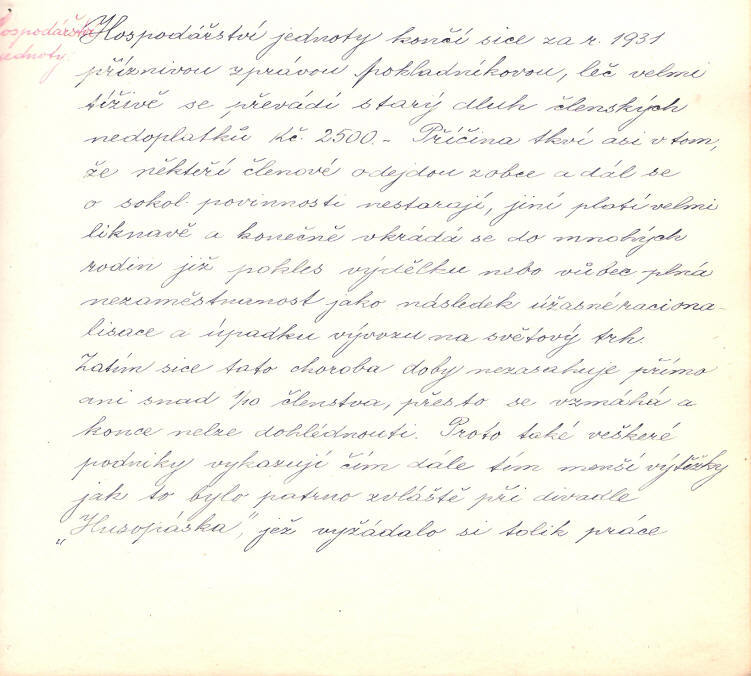 Hospodářství
jednoty.
Hospodářství jednoty končí sice za r. 1931
příznivou zprávou pokladníkovou, leč velmi
tíživě se převádí starý dluh členských
nedoplatků Kč. 2500.- Příčina tkví asi v tom,
že někteří členové odejdou z obce a dál se
o sokol. povinnosti nestarají, jiní platí velmi
liknavě a konečně vkrádá se do mnohých
rodin již pokles výdělku nebo vůbec plná
nezaměstnanost jako následek úžasné raciona-
lisace a úpadku vývozu na světový trh.
Zatím sice tato choroba doby nezasahuje přímo
ani snad 1/10 členstva, přesto se vzmáhá a
konce nelze dohlédnouti. Proto také veškeré
podniky vykazují čím dále tím menší výtěžky
jak to bylo patrno zvláště při divadle
„Husopáska", jež vyžádalo si tolik práce